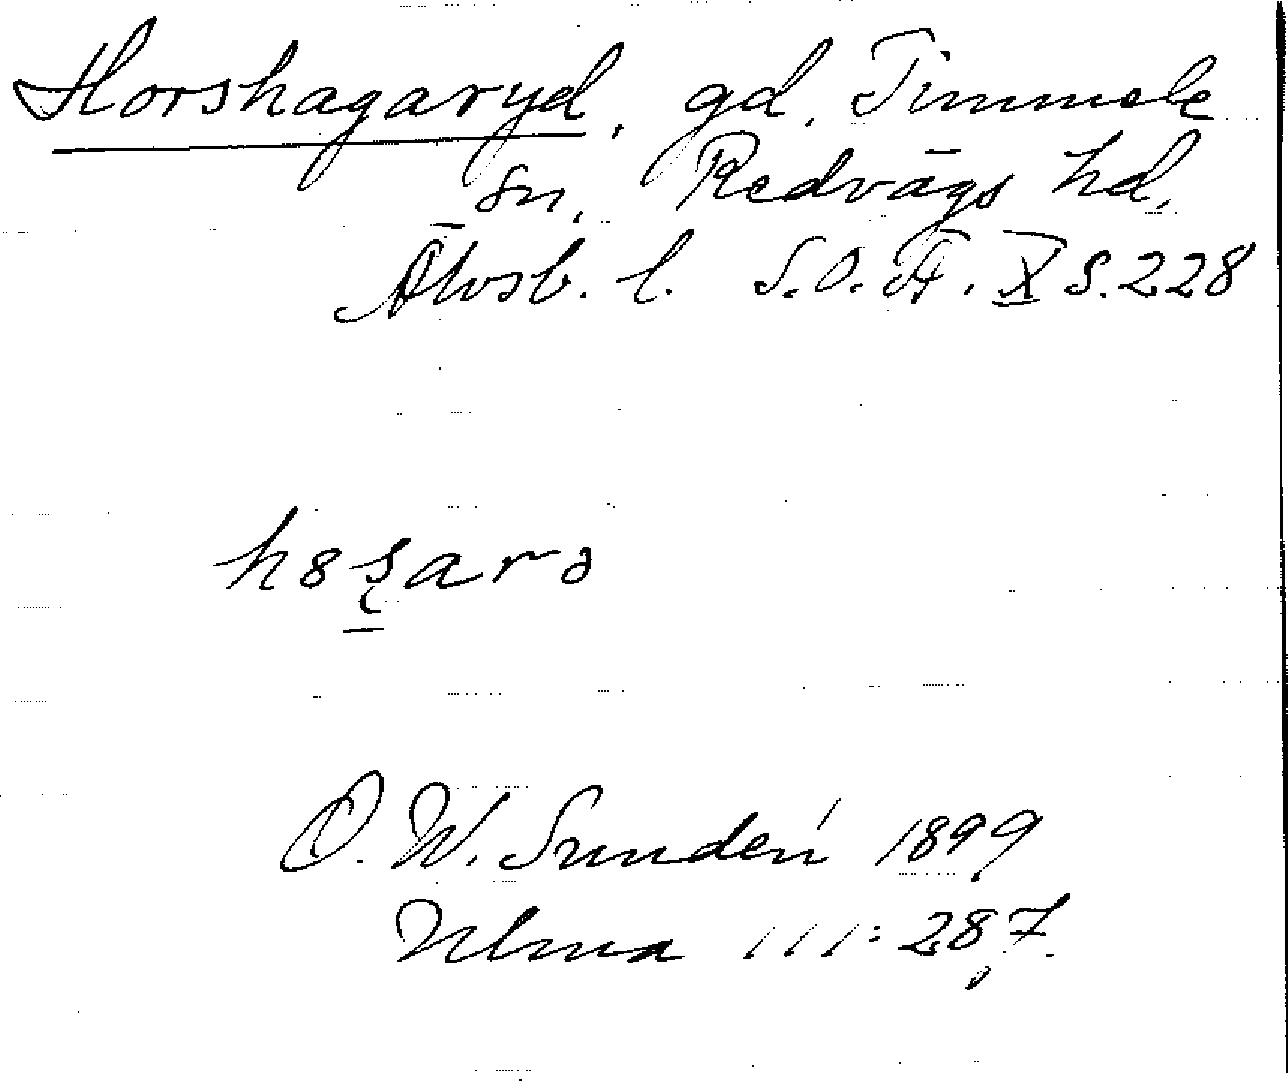 Horshagaryd, gd, Timmele
sn, Redvägs hd,
Älvsb. l. S.O.Ä. X S. 228
D. W. Sundén 1899
Ulma 111:287.